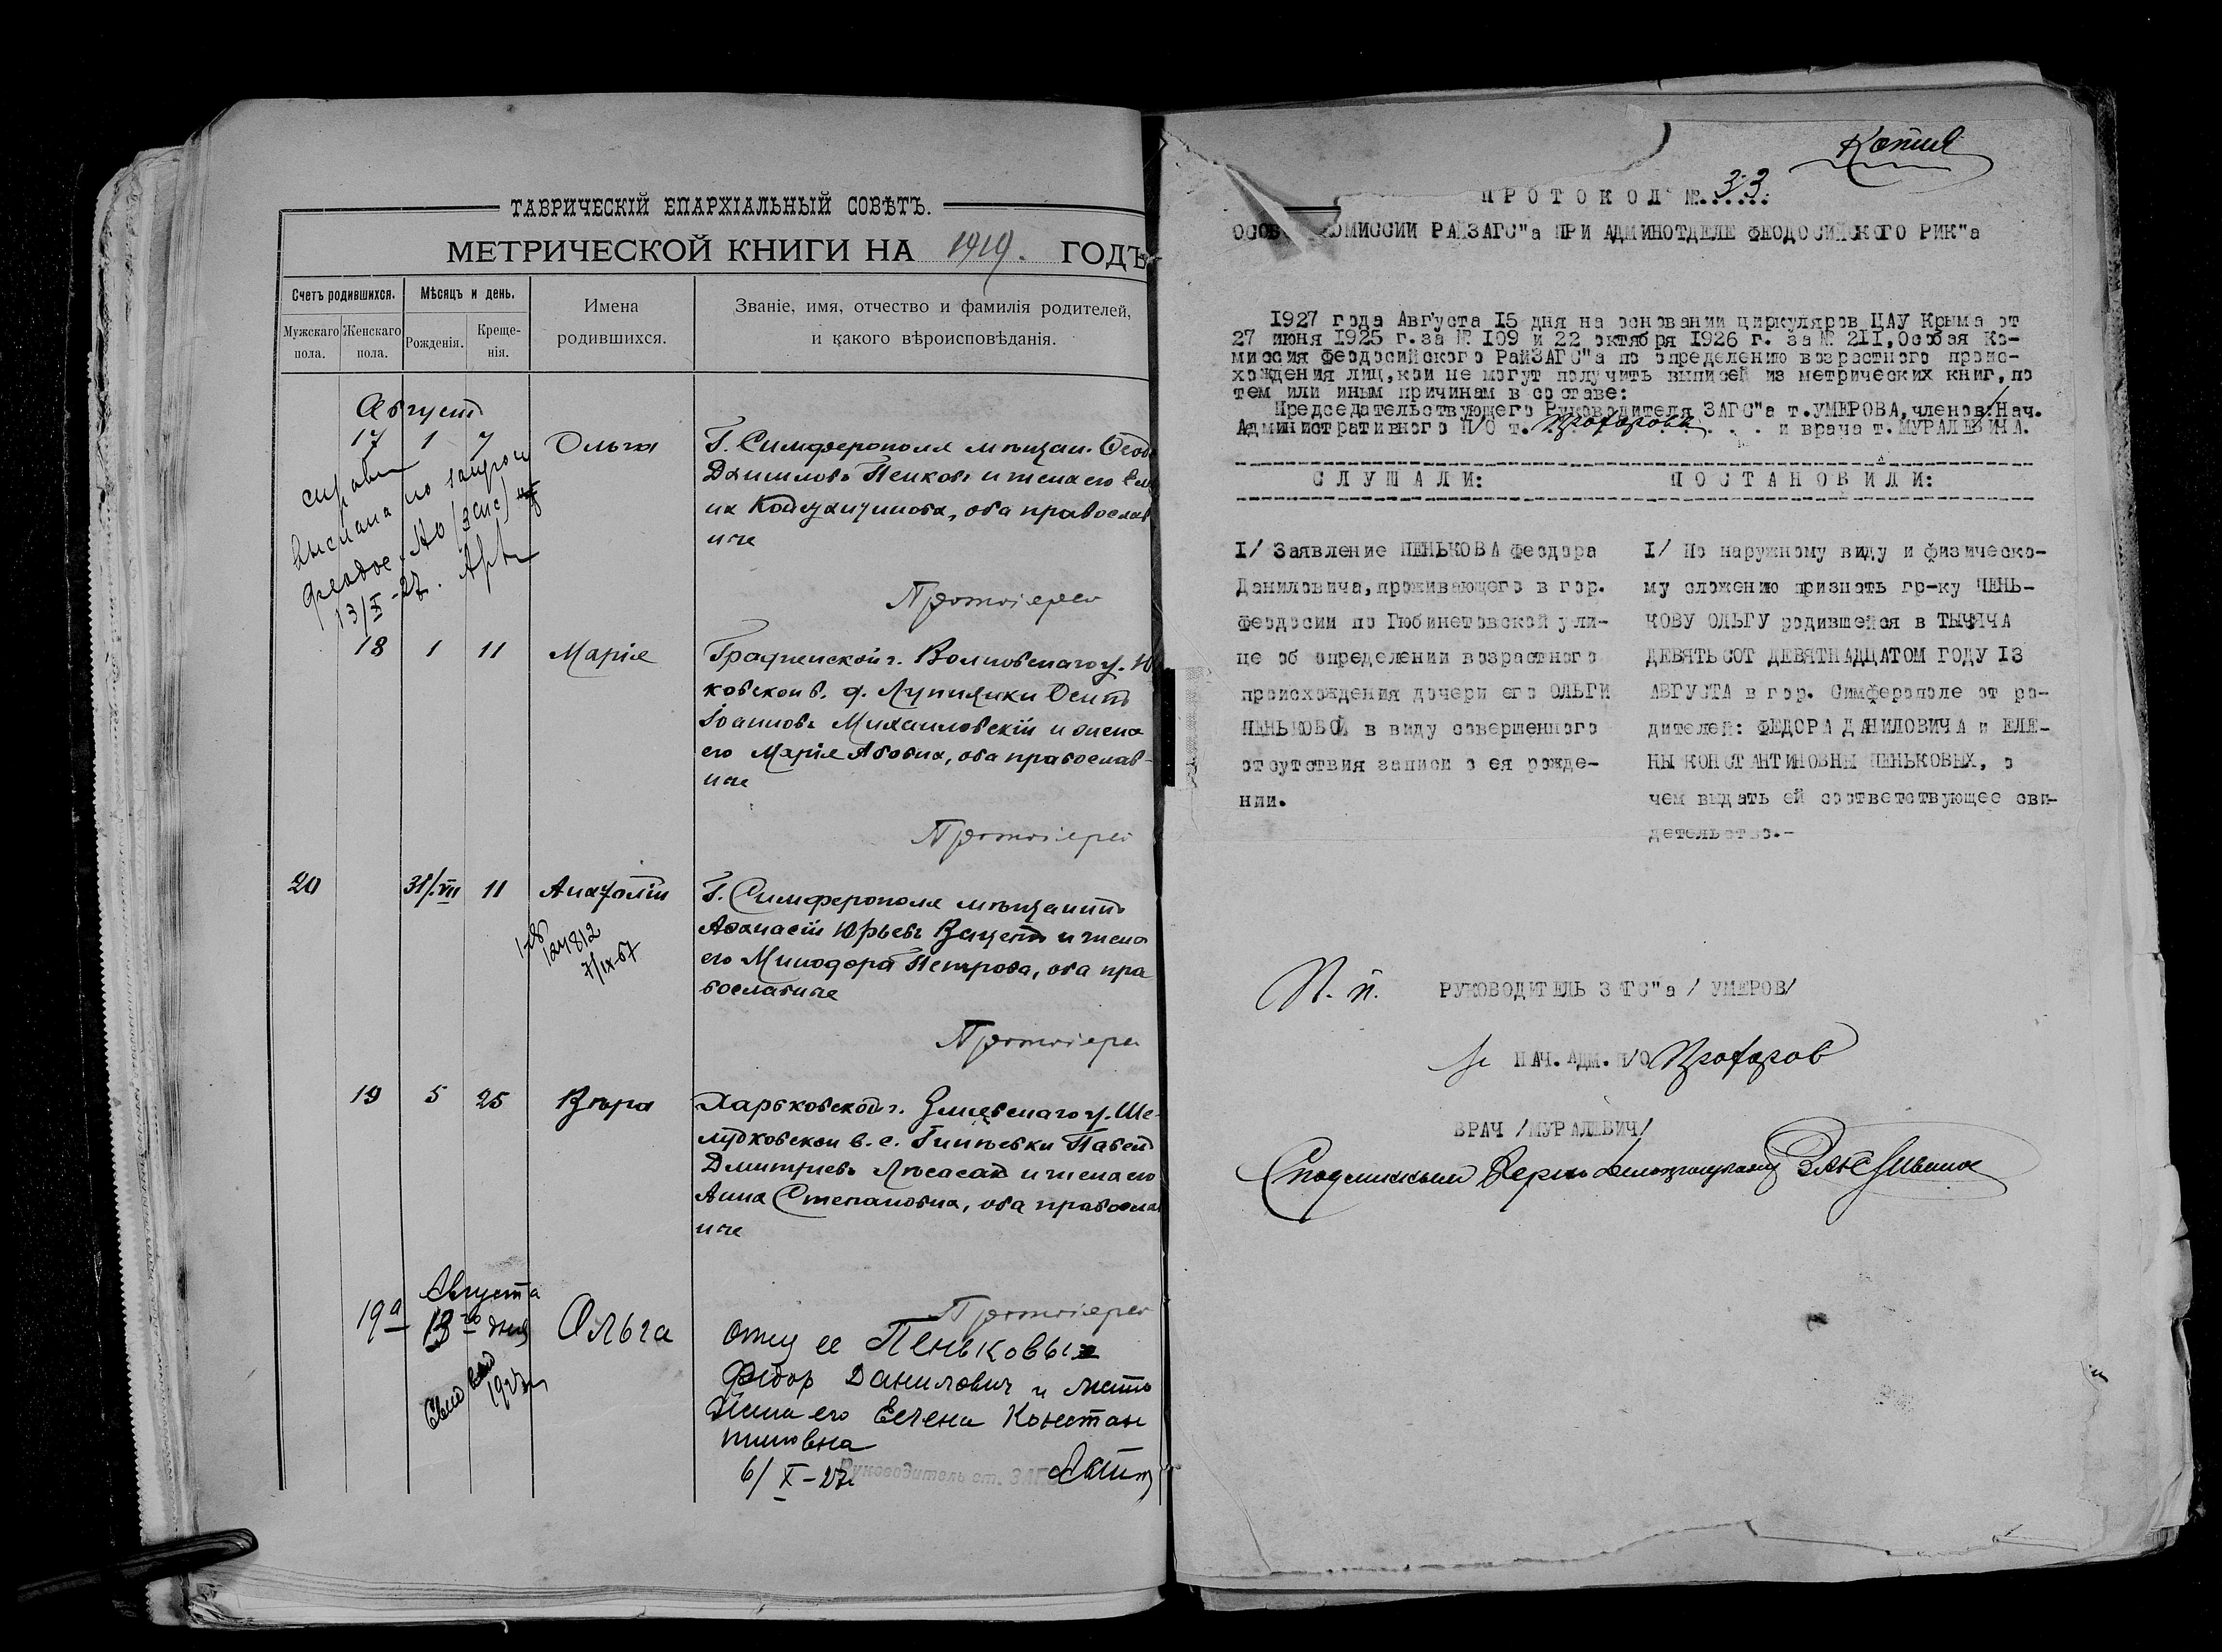 ТАВРИЧЕСКІЙ ЕПАРХІАЛЬНЫЙ СОВѢТЪ.
МЕТРИЧЕСКОЙ КНИГИ НА 1919. ГОДЪ
Счетъ родившихся.
Мужскаго пола.
Женскаго пола.
Мѣсяцъ и день.
Рожденія.
Креще-
нія.
Имена
родившихся.
Званіе, имя, отчество и фамилія родителей,
и какого вѣроисповѣданія.
Августъ
17 1 7 Ольга
Г. Симферополя мѣщан. Ѳеод
Даниловъ Пеньковъ и жена его Еле
на Константинова, оба православ
ные
выслана по
13/X-27.
Протоіерей
18 1 11 Марія
Гродненской г. Волковскаго у.
ковской в. д. Лупилики Осипъ
Іоанновъ Михаиловскій и жена
его Марія Львовна, оба православ-
ные
Протоіерей
20 31/VII 11 Анатолій
7/IX-67
Г. Симферополя мѣщанинъ
Аѳанасій Юрьевъ и жена
его Минодора Петрова, оба пра
вославные
Протоіерей
19 5 25 Вѣра
Харьковской г. Зміевскаго у. Ше-
лудковской в. с. Гиніевки Павелъ
Дмитріевъ и жена его
Анна Степановна, оба православ
ные
Протоіерей
19а Августа
13го дня Ольга
отец ее Пеньковы
Федор Данилович и мать
жена его Елена Констан
тиновна
6/X-27г
Руководитель ст. ЗАГС
Копия
ПРОТОКОЛ №. 33.
ОСОБ КОМИССИИ РАЙЗАГС"а ПРИ АДМИНОТДЕЛЕ ФЕОДОСИЙСКОГО РИК"а
1927 года Августа 15 дня на основании циркуляров ЦАУ Крыма от
27 июня 1925 г. за № 109 и 22 октября 1926 г. за № 211, Особая Ко-
миссия Феодосийского РайЗАГС"а по определению возрастного проис-
хождения лиц, кои не могут получить выписей из метрических книг, по
тем или иным причинам в составе:
Председательствующего Руководителя ЗАГС"а т. УМЕРОВА, членов: Нач.
Административного П/О т. Прохорова . . . . и врача т. МУРАЛЕВИЧА.
СЛУШАЛИ:
ПОСТАНОВИЛИ:
I/ Заявление ПЕНЬКОВА Феодора
Даниловича, проживающего в гор.
Феодосии по Гюбинетовской ули-
це об определении возрастного
происхождения дочери его ОЛЬГИ
ПЕНЬКОВОЙ в виду совершенного
отсутствия записи о ея рожде-
нии.
I/ По наружному виду и физическо-
му сложению признать гр-ку ПЕНЬ-
КОВУ ОЛЬГУ родившейся в ТЫСЯЧА
ДЕВЯТЬСОТ ДЕВЯТНАДЦАТОМ ГОДУ 13
АВГУСТА в гор. Симферополе от ро-
дителей: ФЕДОРА ДАНИЛОВИЧА и ЕЛЕ-
НЫ КОНСТАНТИНОВНЫ ПЕНЬКОВЫХ, о
чем выдать ей соответствующее сви-
детельство.-
П. п. РУКОВОДИТЕЛЬ ЗАГС"а /УМЕРОВ/
НАЧ. АДМ. П/О Прохоров
ВРАЧ /МУРАЛЕВИЧ/
С подлинным верно